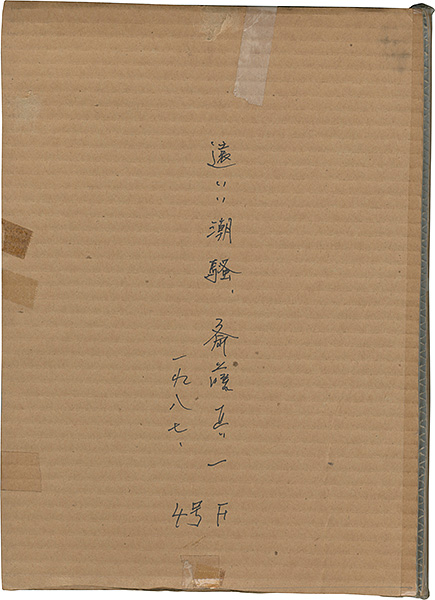 遠い潮騒、斎藤真一
一九八七、
4号F